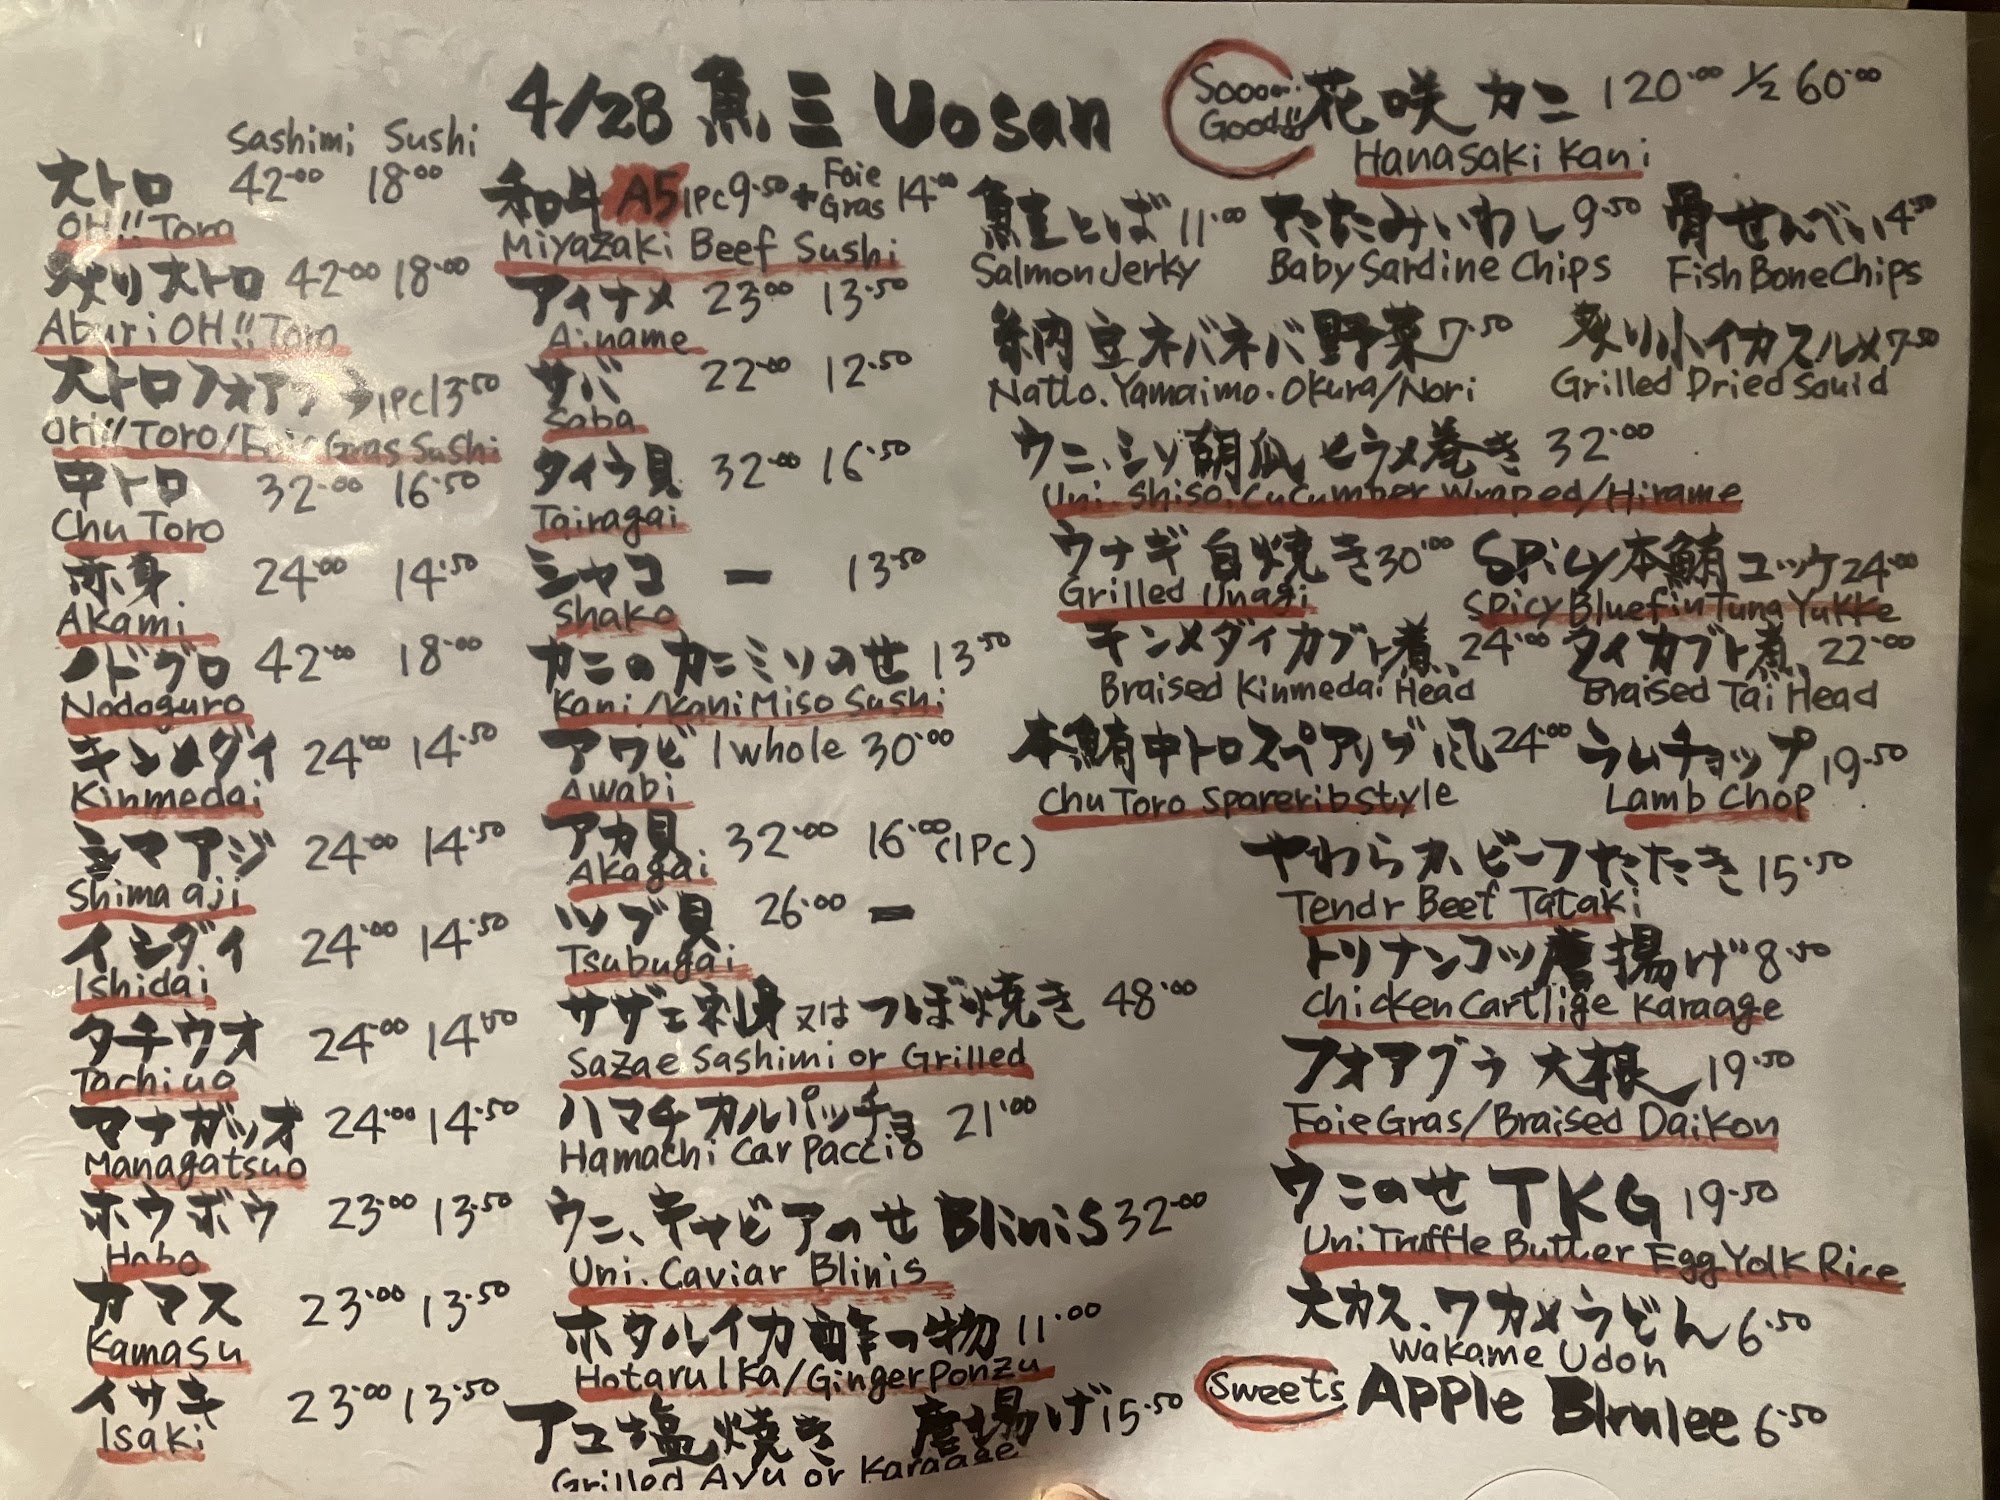 4/28 魚三 Uosan
Sashimi Sushi
大トロ 42.00 18.00
OH!! Toro
炙り大トロ 42.00 18.00
Aburi OH!! Toro
大トロフォアグラ 1PC 13.50
OH!! Toro/Foie Gras Sushi
中トロ 32.00 16.50
Chu Toro
赤身 24.00 14.50
Akami
ノドグロ 42.00 18.00
Nodoguro
キンメダイ 24.00 14.50
Kinmedai
シマアジ 24.00 14.50
Shima aji
イシダイ 24.00 14.50
Ishidai
タチウオ 24.00 14.50
Tachiuo
マナガツオ 24.00 14.50
Managatsuo
ホウボウ 23.00 13.50
Hobo
カマス 23.00 13.50
Kamasu
イサキ 23.00 13.50
Isaki
和牛 A5 1PC 9.50 + Foie Gras 14.00
Miyazaki Beef Sushi
アイナメ 23.00 13.50
Ainame
サバ 22.00 12.50
Saba
タイラ貝 32.00 16.50
Tairagai
シャコ ー 13.50
Shako
カニのカニミソのせ 13.50
Kani/Kani Miso Sushi
アワビ 1 whole 30.00
Awabi
アカ貝 32.00 16.00 (1PC)
Akagai
ツブ貝 26.00 ー
Tsubugai
サザエ刺身又はつぼ焼き 48.00
Sazae Sashimi or Grilled
ハマチカルパッチョ 21.00
Hamachi Carpaccio
ウニ、キャビアのせ Blinis 32.00
Uni. Caviar Blinis
ホタルイカ酢の物 11.00
Hotaru Ika/Ginger Ponzu
アユ塩焼き 唐揚げ 15.50
Grilled Ayu or Karaage
Soooo.. Good!! 花咲カニ 120.00 1/2 60.00
Hanasaki Kani
鮭とば 11.00 たたみいわし 9.50 骨せんべい 4.50
Salmon Jerky Baby Sardine Chips Fish Bone Chips
納豆ネバネバ野菜 7.50 炙り小イカスルメ 7.50
Natto. Yamaimo. Okura/Nori Grilled Dried Squid
ウニ、シソ胡瓜ヒラメ巻き 32.00
Uni. Shiso. Cucumber Wraped/Hirame
ウナギ白焼き 30.00 SPicy本鮪ユッケ 24.00
Grilled Unagi Spicy Bluefin Tuna Yukke
キンメダイカブト煮 24.00 タイカブト煮 22.00
Braised Kinmedai Head Braised Tai Head
本鮪中トロスペアリブ風 24.00 ラムチョップ 19.50
Chu Toro Sparerib Style Lamb Chop
やわらかビーフたたき 15.50
Tendr Beef Tataki
トリナンコツ唐揚げ 8.50
Chicken Cartlige Karaage
フォアグラ大根 19.50
Foie Gras/Braised Daikon
ウニのせ TKG 19.50
Uni Truffle Butter Egg Yolk Rice
天カス、ワカメうどん 6.50
Wakame Udon
Sweets Apple Blrulee 6.50